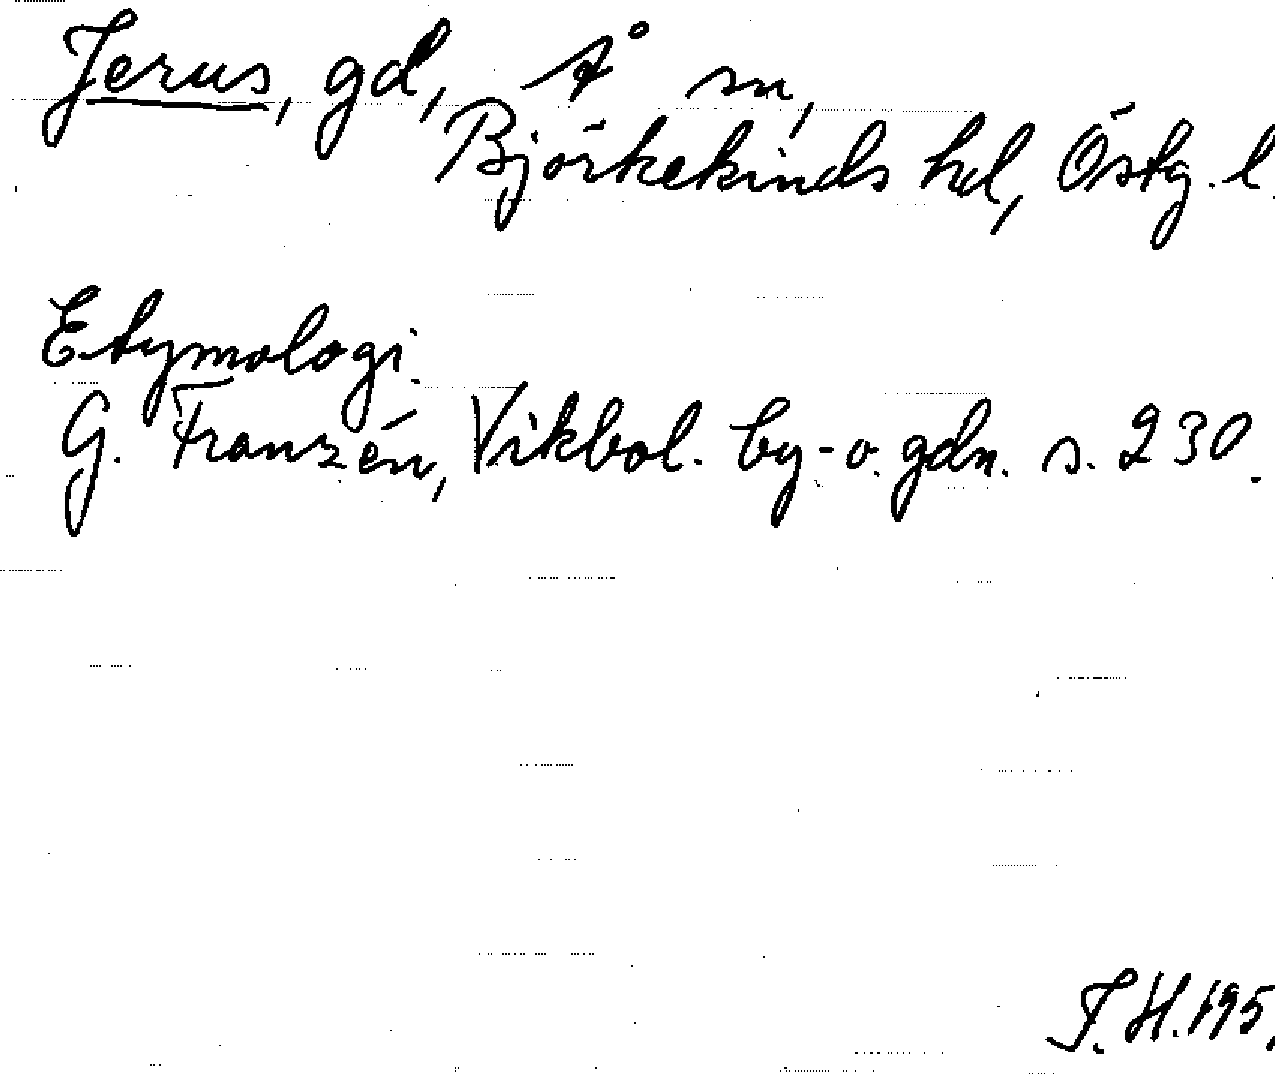 Jerus, gd, Å sn,
Björkekinds hd, Östg. l.
Etymologi.
G. Franzén, Vikbol. by- o. gdn. s. 230.
T. H. 195